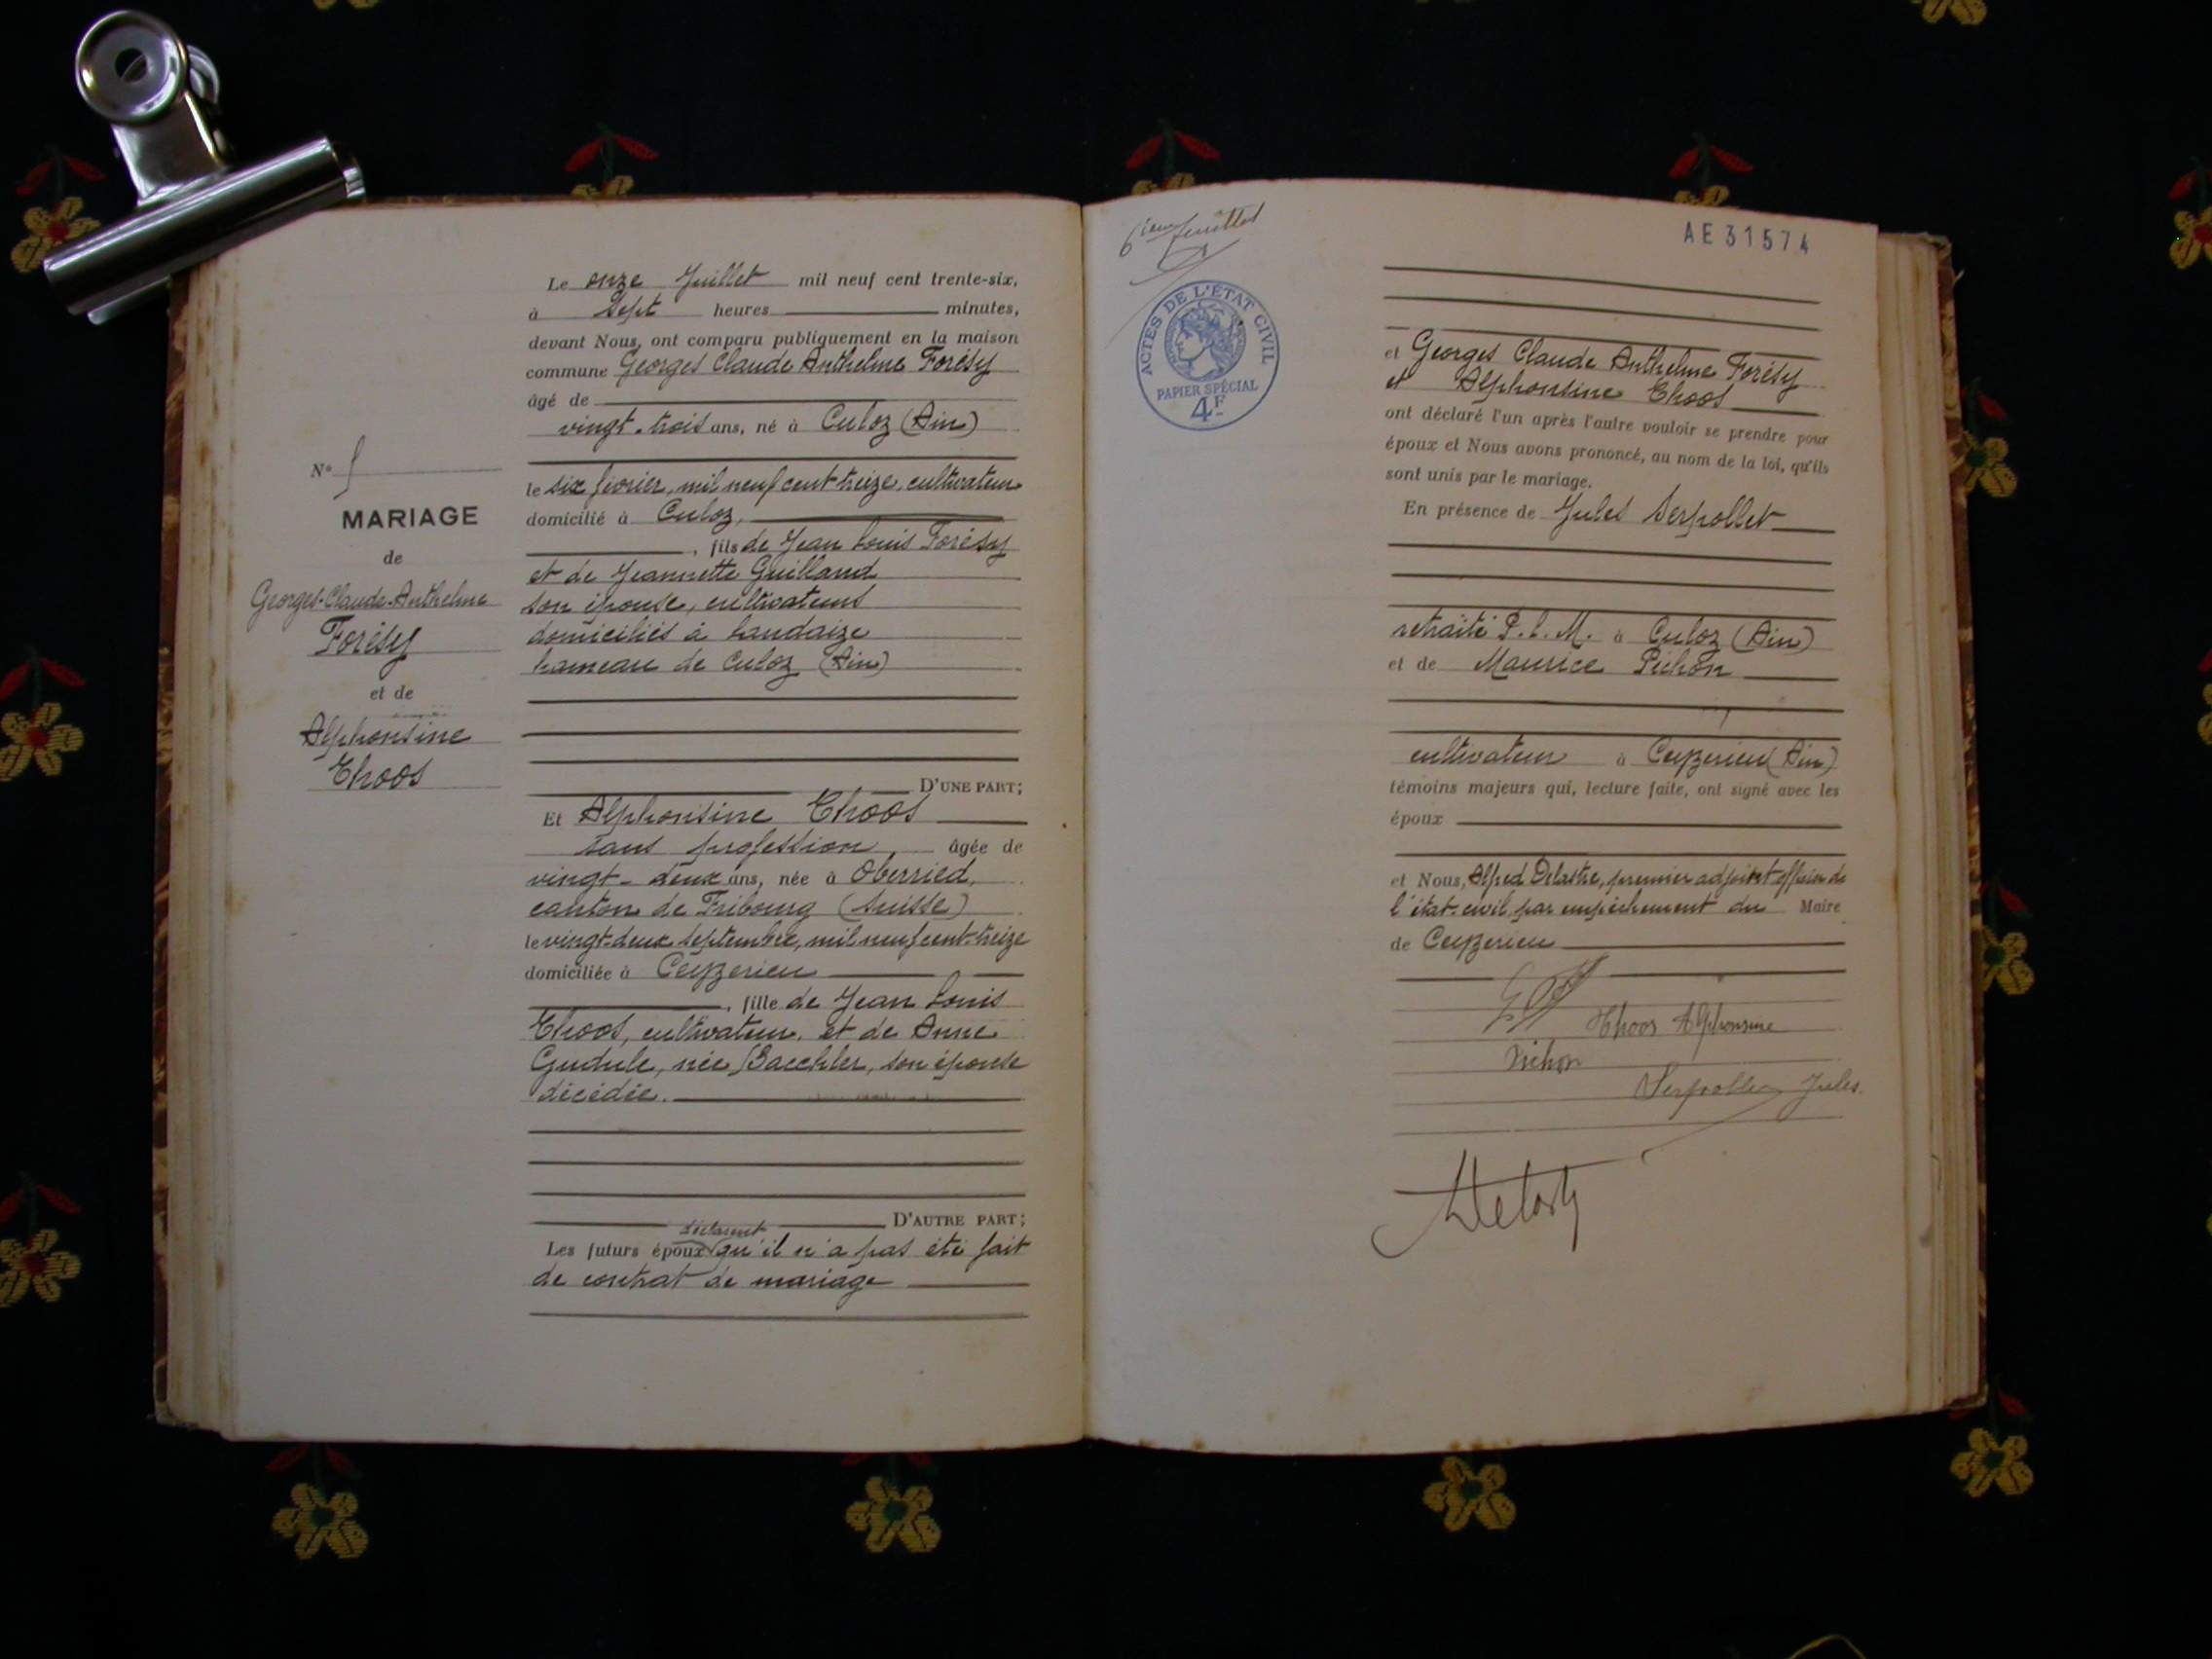 Le onze Juillet mil neuf cent trente-six,
à Sept heures minutes,
devant Nous, ont comparu publiquement en la maison
commune Georges Claude Anthelme Forésy
âgé de
vingt-trois ans, né à Culoz (Ain)
le six février, mil neuf cent treize, cultivateur
domicilié à Culoz,
, fils de Jean Louis Forésy
et de Jeannette Guilland
son épouse, cultivateurs
domiciliés à Landaize
hameau de Culoz (Ain)
D'UNE PART;
Et Alphonsine Thoos
sans profession, âgée de
vingt-deux ans, née à Oberried,
canton de Fribourg (Suisse)
le vingt-deux septembre, mil neuf cent treize
domiciliée à Ceyzerieu
, fille de Jean Louis
Thoos, cultivateur, et de Anne
Gudule, née Baechler, son épouse
décédée.
D'AUTRE PART;
déclarent
Les futurs époux qu'il n'a pas été fait
de contrat de mariage
N°
MARIAGE
de
Georges-Claude-Anthelme
Forésy
et de
Alphonsine
Thoos
6ième feuillet
ACTES DE L'ÉTAT CIVIL
PAPIER SPÉCIAL
4F
AE31574
et Georges Claude Anthelme Forésy
et Alphonsine Thoos
ont déclaré l'un après l'autre vouloir se prendre pour
époux et Nous avons prononcé, au nom de la loi, qu'ils
sont unis par le mariage.
En présence de Jules Serpollet
retraité P.L.M. à Culoz (Ain)
et de Maurice Pichon
cultivateur à Ceyzerieu (Ain)
témoins majeurs qui, lecture faite, ont signé avec les
époux
et Nous, Alfred Delastre, premier adjoint officier de
l'état-civil par empêchement du Maire
de Ceyzerieu
Thoos Alphonsine
Pichon
Serpollet Jules.